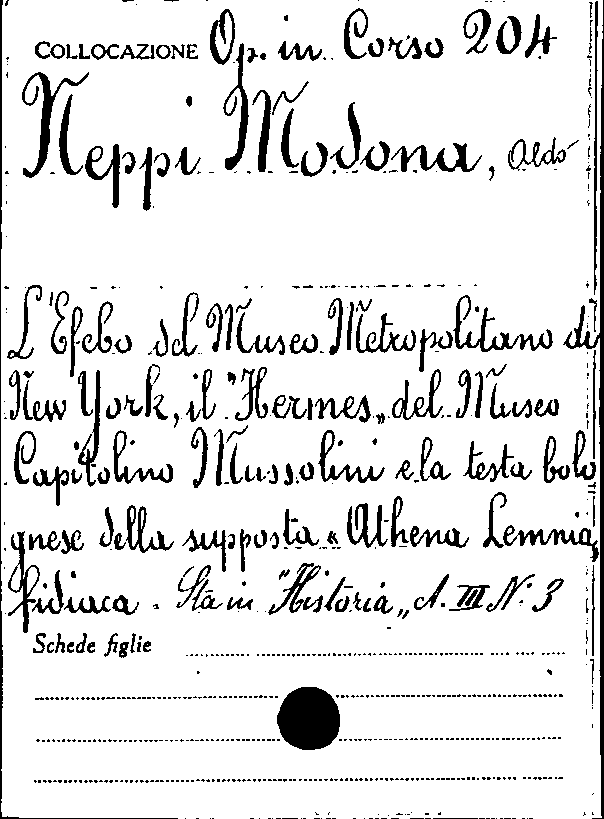 COLLOCAZIONE Op. in Corso 204
Neppi Modona, Aldo
L'Efebo del Museo Metropolitano di
New York, il "Hermes„ del Museo
Capitolino Mussolini e la testa bolo
gnese della supposta « Athena Lemnia„
fidiaca. Sta in "Historia„ A. III N. 3
Schede figlie